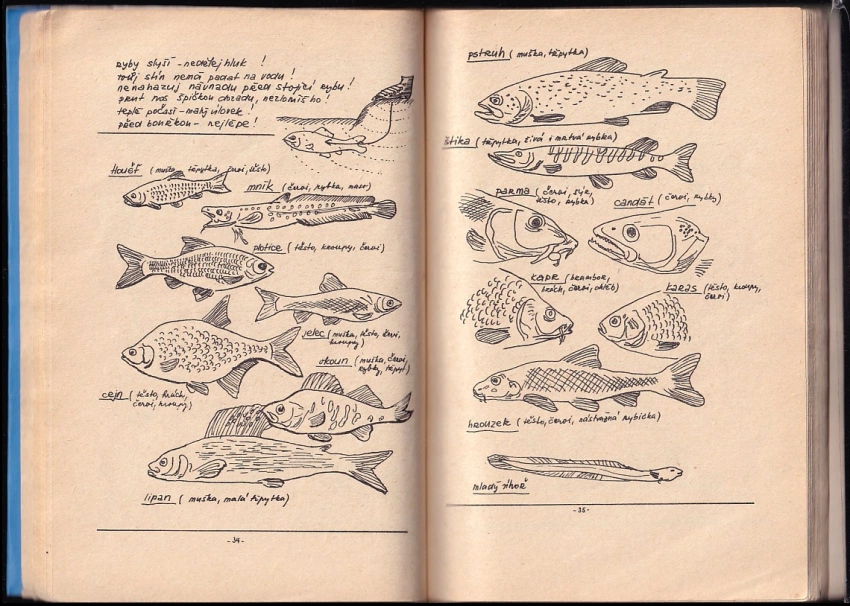 ryby slyší - nedělej hluk !
tvůj stín nemá padat na vodu !
nenahazuj návnadu před stojící rybu !
prut nos špičkou dozadu, nezlomíš ho !
teplé počasí - malý úlovek !
před bouřkou - nejlépe !
tloušť (muška, třpytka, červi, těsto)
mník (červi, rybka, maso)
plotice (těsto, kroupy, červi)
jelec (muška, těsto, červi,
kroupy)
okoun (muška, červi,
rybky, třpyt.)
cejn (těsto, hrách,
červi, kroupy)
lipan (muška, malá třpytka)
-34-
pstruh (muška, třpytka)
štika (třpytka, živá i mrtvá rybka)
parma (červi, sýr,
těsto, rybka)
candát (červi, rybky)
kapr (brambor,
hrách, červi, chléb)
karas (těsto, kroupy,
červi)
hrouzek (těsto, červi, nástražná rybička)
mladý úhoř
-35-